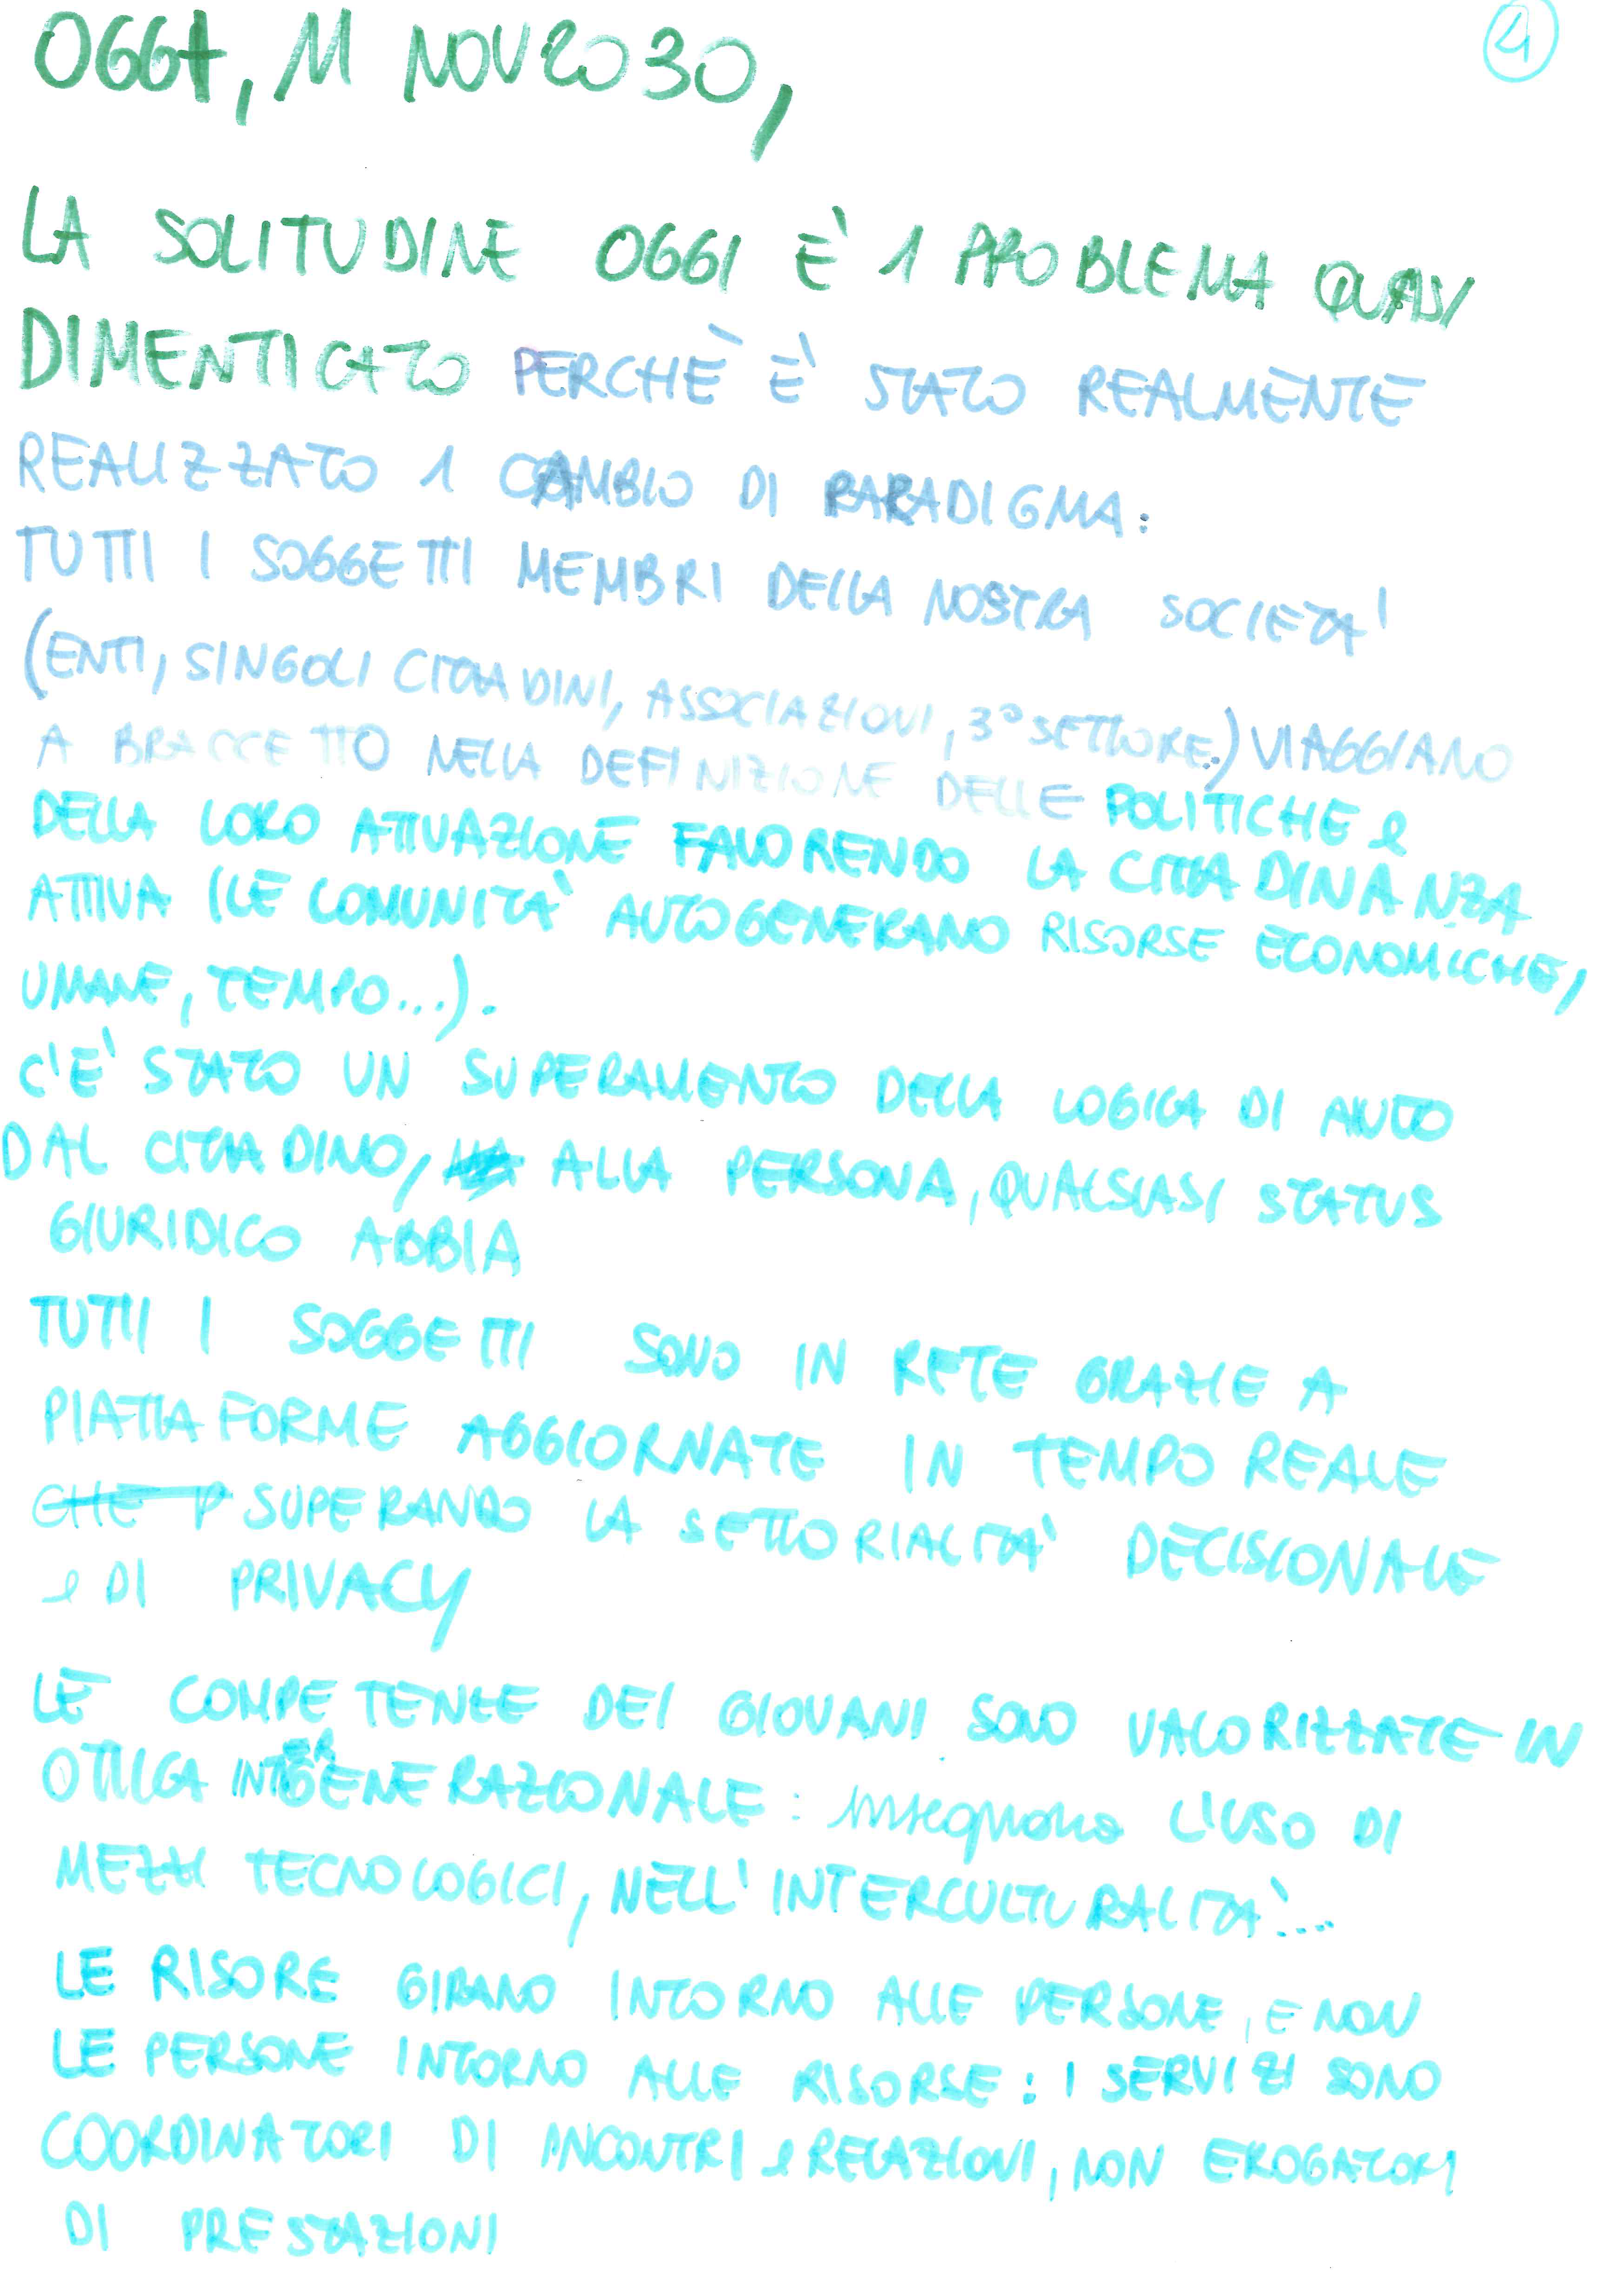 4
OGGI, 11 NOV 2030,
LA SOLITUDINE OGGI È 1 PROBLEMA QUASI
DIMENTICATO PERCHÈ È STATO REALMENTE
REALIZZATO 1 CAMBIO DI PARADIGMA:
TUTTI I SOGGETTI MEMBRI DELLA NOSTRA SOCIETA'
(ENTI, SINGOLI CITTADINI, ASSOCIAZIONI, 3° SETTORE.) VIAGGIANO
A BRACCETTO NELLA DEFINIZIONE DELLE POLITICHE e
DELLA LORO ATTUAZIONE FAVORENDO LA CITTADINANZA
ATTIVA (LE COMUNITA' AUTOGENERANO RISORSE ECONOMICHE,
UMANE, TEMPO...).
C'E' STATO UN SUPERAMENTO DELLA LOGICA DI AIUTO
DAL CITTADINO, ALLA PERSONA, QUALSIASI STATUS
GIURIDICO ABBIA
TUTTI I SOGGETTI SONO IN RETE GRAZIE A
PIATTAFORME AGGIORNATE IN TEMPO REALE
CHE P SUPERANDO LA SETTORIALITA' DECISIONALE
e DI PRIVACY
LE COMPETENZE DEI GIOVANI SONO VALORIZZATE IN
OTTICA INTERGENERAZIONALE: insegnano L'USO DI
MEZZI TECNOLOGICI, NELL'INTERCULTURALITA'...
LE RISORE GIRANO INTORNO ALLE PERSONE, E NON
LE PERSONE INTORNO ALLE RISORSE: I SERVIZI SONO
COORDINATORI DI INCONTRI e RELAZIONI, NON EROGATORI
DI PRESTAZIONI